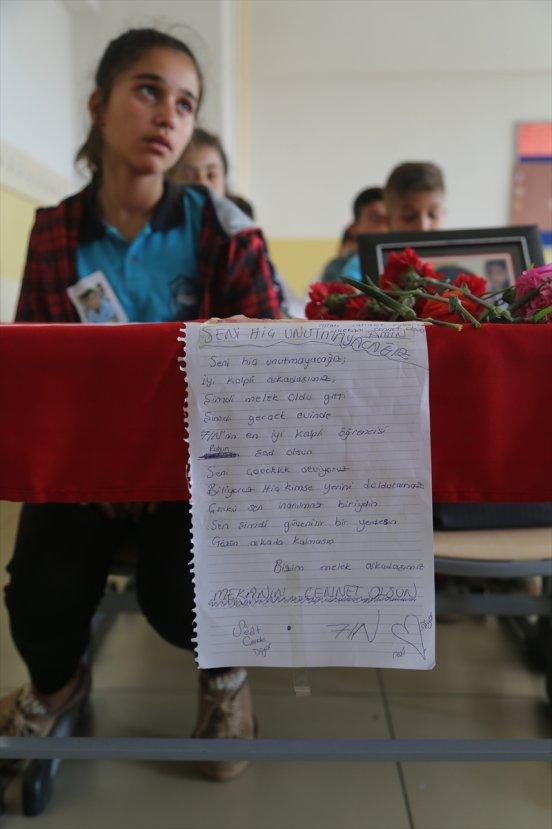 AMIN
SENI HIÇ UNUTMAYACAĞIZ
Seni hiç unutmayacağız;
iyi kalpli arkadaşımız;
Şimdi melek oldu gitti
Şimdi gerçek evinde
7/N'nin en iyi kalpli öğrencisi
Ruhun Şad olsun
Seni Çoookkk seviyoruz
Biliyoruz Hiç kimse yerini dolduramaz
Çünkü sen inanılmaz biriydin
Sen şimdi güvenilir bir yerdesin
Gözün arkada kalmasın
Bizim melek arkadaşımız
MEKANIN CENNET OLSUN
7/N